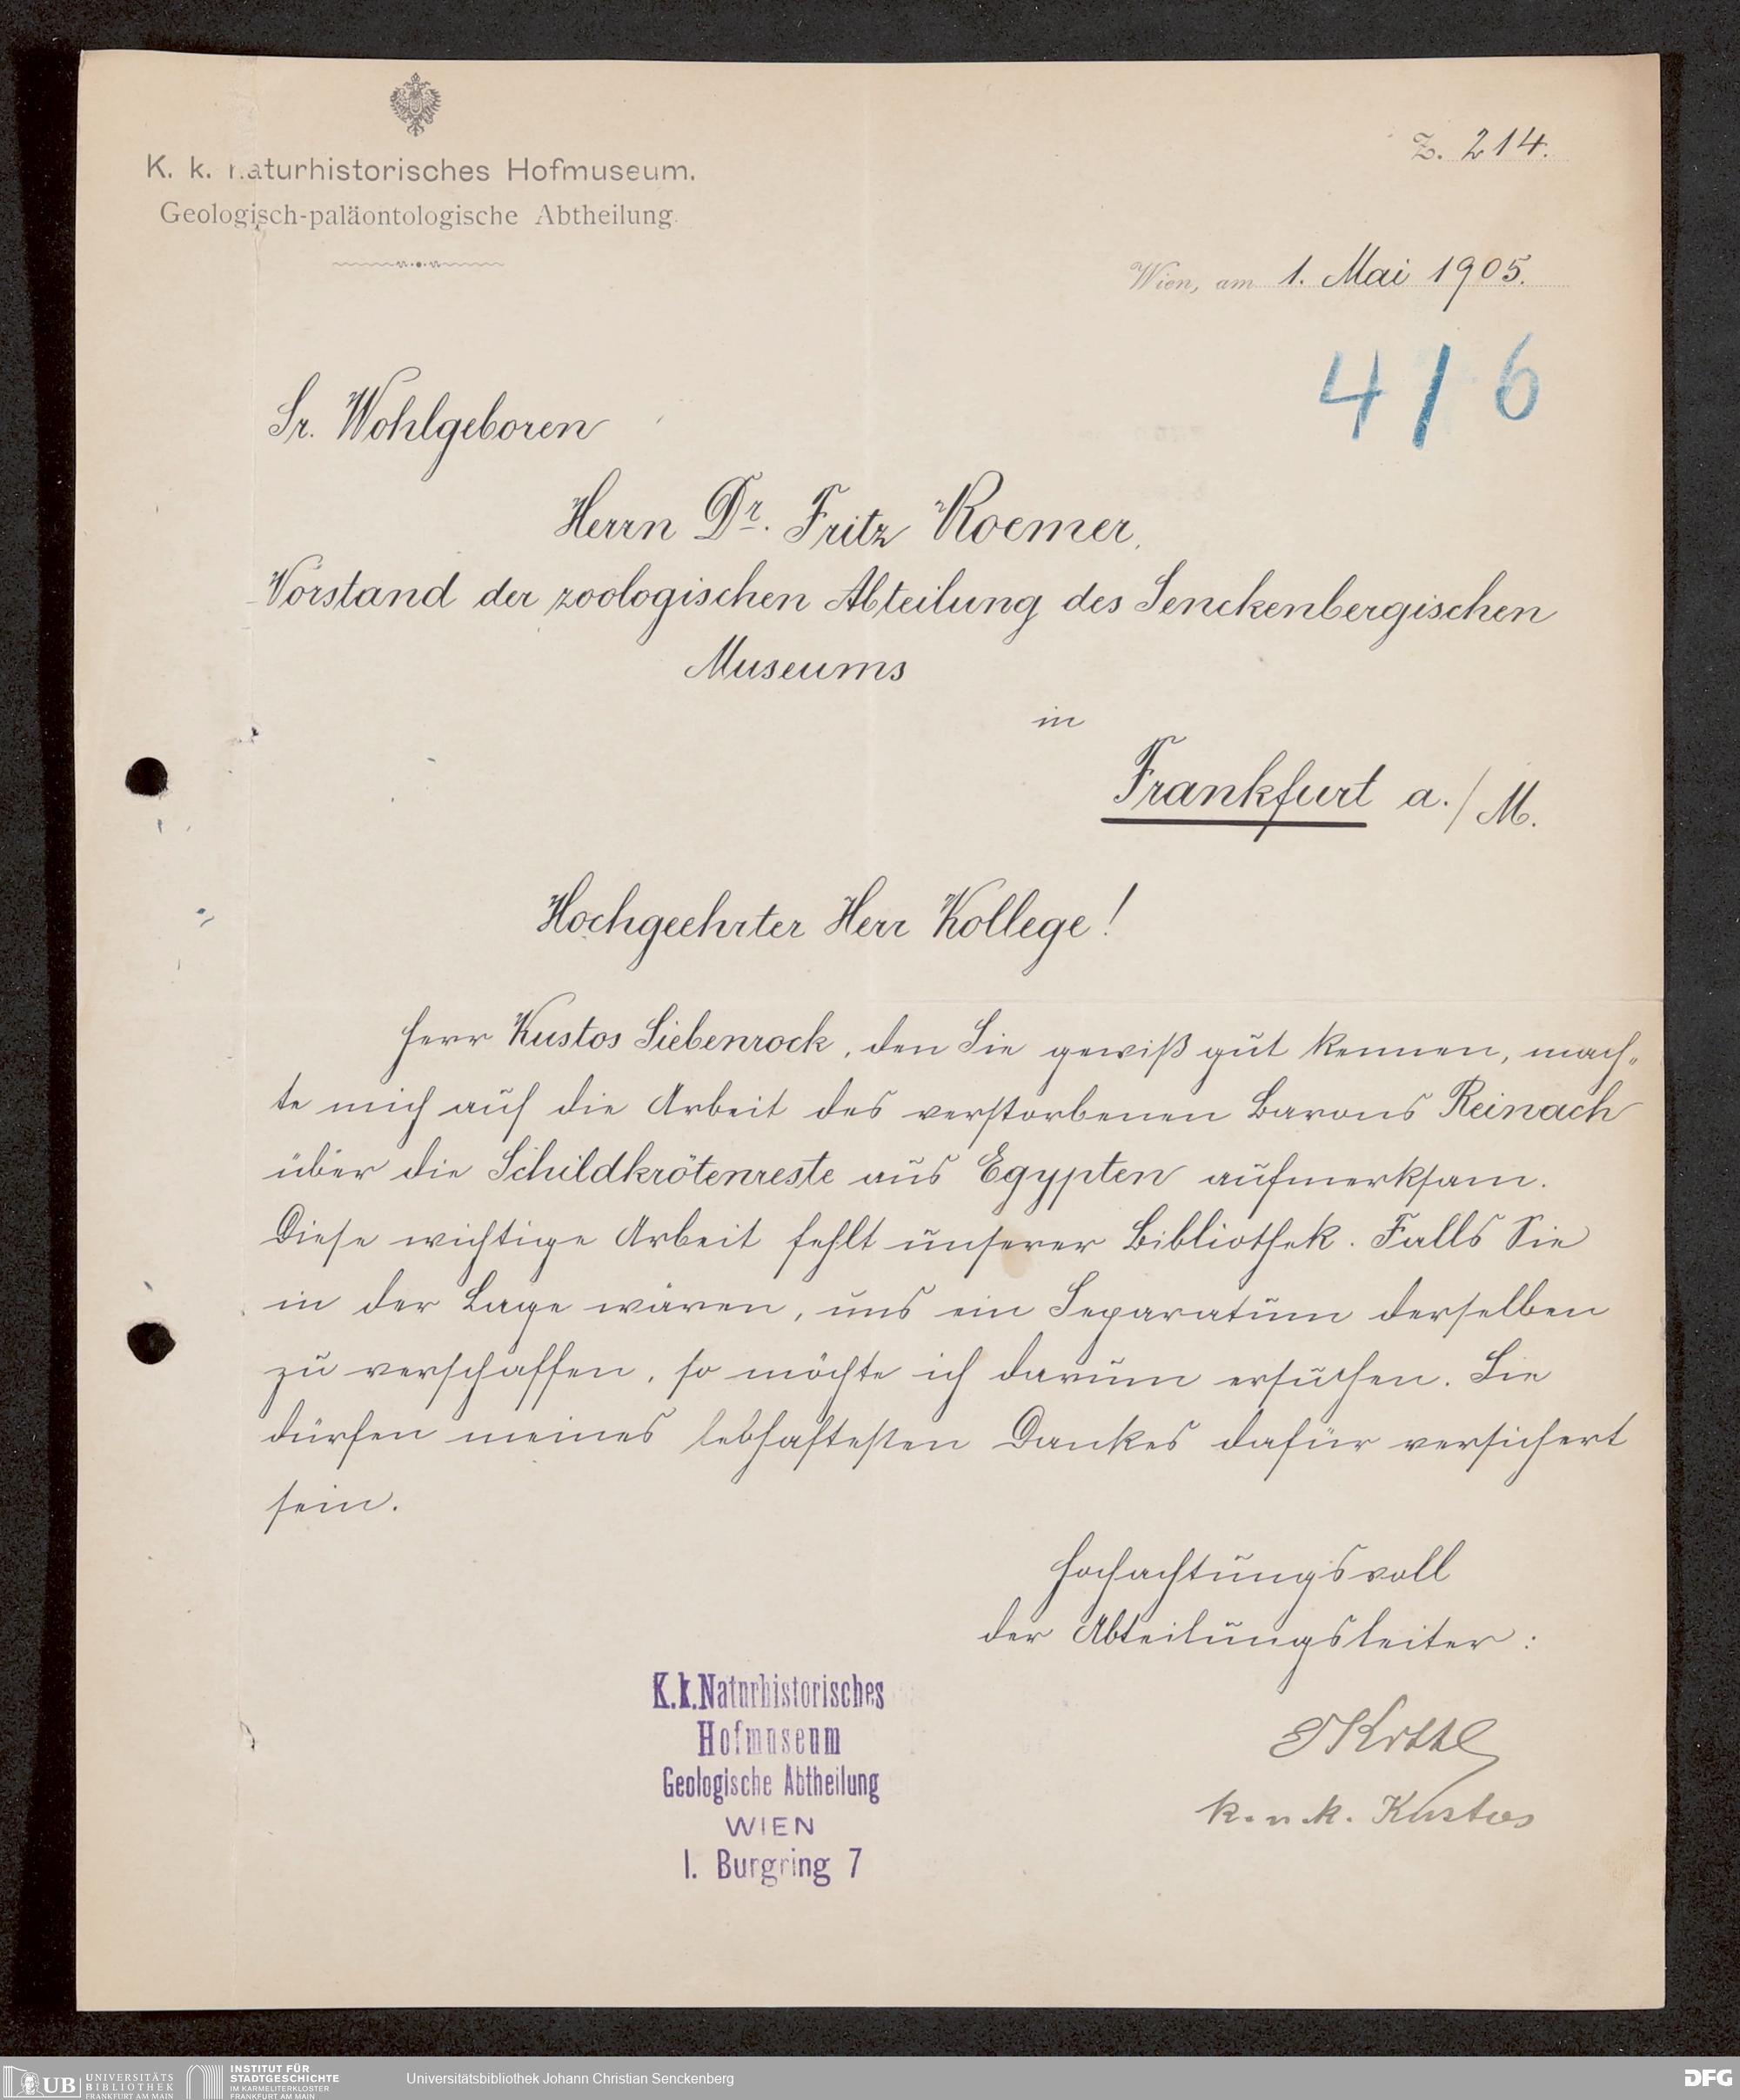 K. k. naturhistorisches Hofmuseum.
Geologisch-paläontologische Abtheilung.
Z. 214.
Wien, am 1. Mai 1905.
4/6
Sr. Wohlgeboren
Herrn Dr. Fritz Roemer,
Vorstand der zoologischen Abteilung des Senckenbergischen
Museums
in
Frankfurt a./M.
Hochgeehrter Herr Kollege!
Herr Kustos Siebenrock, den Sie gewiß gut kennen, mach-
te mich auf die Arbeit des verstorbenen Barons Reinach
über die Schildkrötenreste aus Egypten aufmerksam.
Diese wichtige Arbeit fehlt unserer Bibliothek. Falls Sie
in der Lage wären, uns ein Separatum derselben
zu verschaffen, so möchte ich darum ersuchen. Sie
dürfen meines lebhaftesten Dankes dafür versichert
sein.
Hochachtungsvoll
der Abteilungsleiter:
E Kittl
k. u. k. Kustos
K.k. Naturhistorisches
Hofmuseum
Geologische Abtheilung
WIEN
I. Burgring 7
UB UNIVERSITÄTS
BIBLIOTHEK
FRANKFURT AM MAIN
INSTITUT FÜR
STADTGESCHICHTE
IM KARMELITERKLOSTER
FRANKFURT AM MAIN
Universitätsbibliothek Johann Christian Senckenberg
DFG